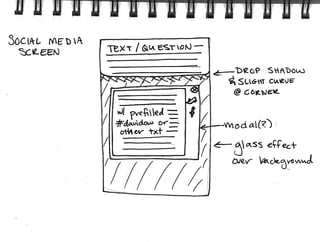 SOCIAL MEDIA
SCREEN
TEXT/QUESTION
DROP SHADOW
& SLIGHT CURVE
@ CORNER
w/ prefilled
#davidow or
other txt
modal(?)
glass effect
over background